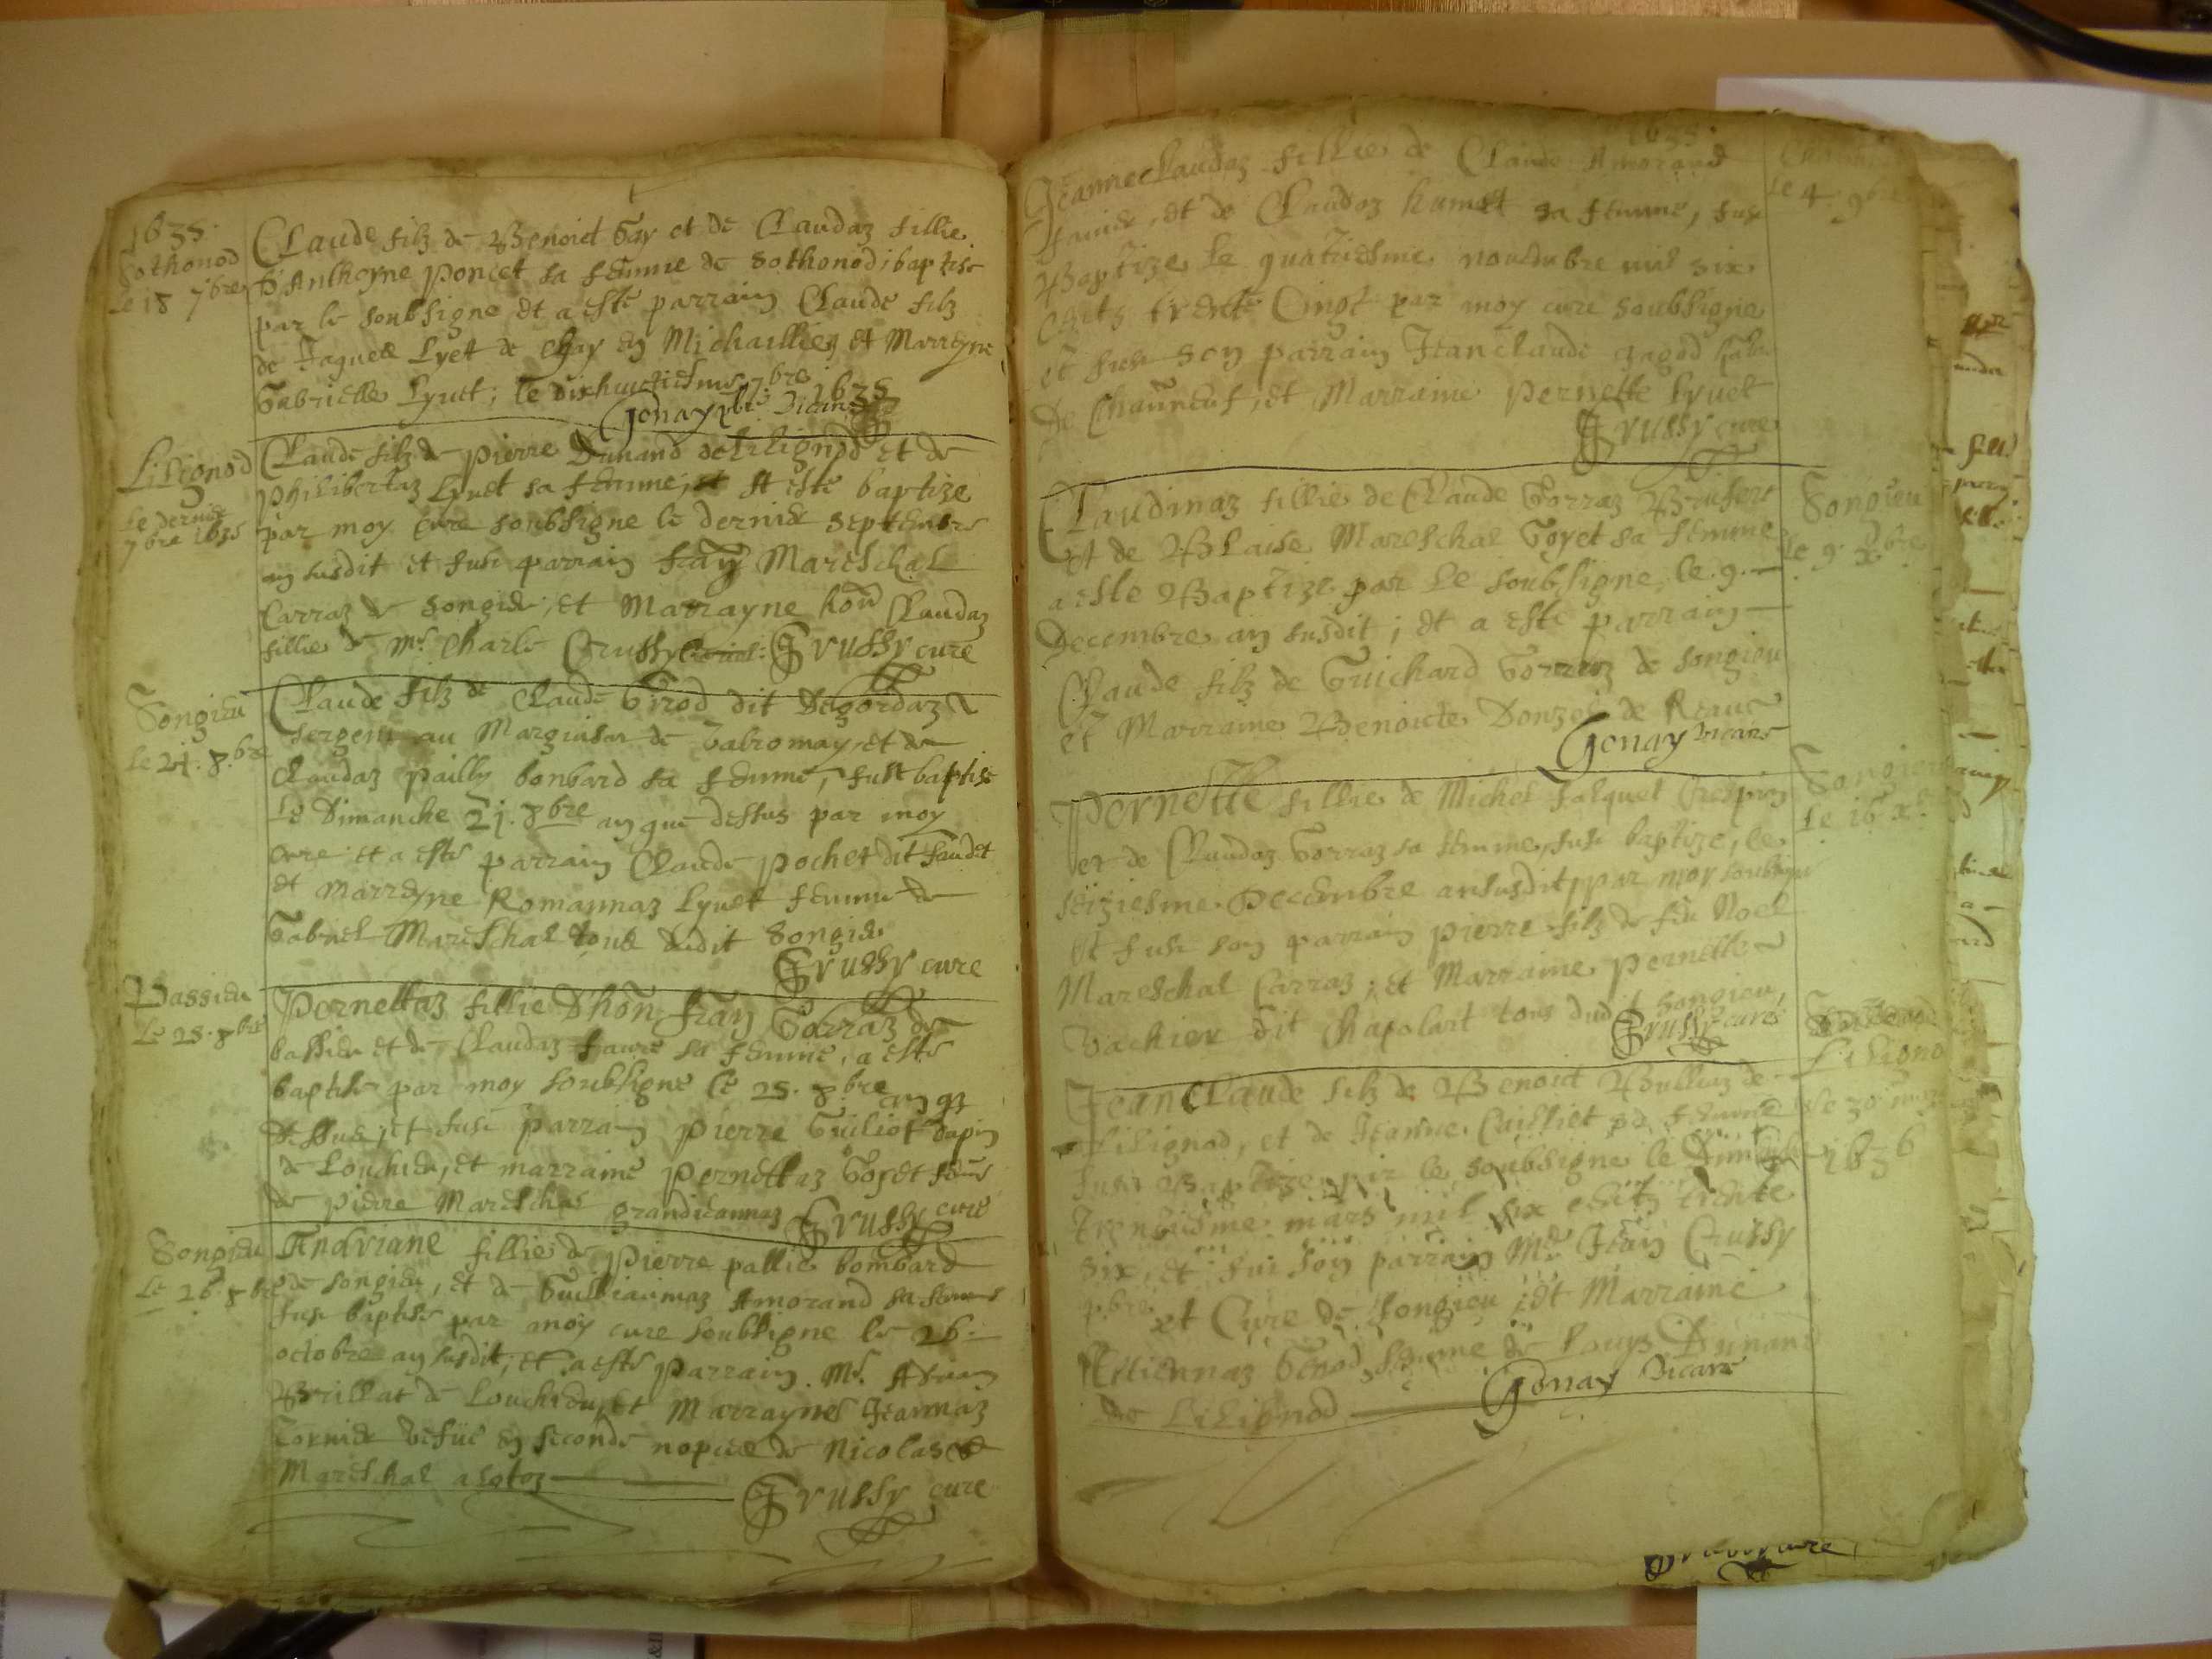 1635.
Sothonod
Le 18 7bre
Claude filz de Benoict Gay et de Claudaz fillie
D'Anthoyne Poncet sa femme de Sothonod; baptise
par le soubsigne et a este parrain Claude filz
de Jaques Lyet de Chay en Michaillie et Marreyne
Gabrielle Lyuet; le dixhuictiesme 7bre 1635
Gonay pbre vicaire
Lilignod
Le dernier
7bre 1635
Claude filz de Pierre Dunand de Lilignod et de
Philibertaz Lyuet sa femme, a este baptize
par moy cure soubsigne le dernier Septembre
an susdit et fust parrain Fran Mareschal
Carraz de Songieu; et Marrayne hon Claudaz
fillie de Mr Charle Crussy Grussy cure
Songieu
le 21. 8.bre
Claude filz de Claude Girod dit Degordaz
sergent au Marquisat de Valromay et de
Claudaz Pailly bonbard sa femme, fust baptise
le Dimanche 21. 8bre an que dessus par moy
cure et a este parrain Claude Pochet dit
et marreyne Romannaz Lyuet femme de
Gabriel Mareschal tous dudit Songieu
Grussy cure
Bassieu
Le 25. 8bre
Pernettaz fillie D'hon Fran Gorraz de
bassieu et de Claudaz Faure sa femme, a este
baptise par moy soubsigne le 25. 8.bre an q
dessus, et fust parrain Pierre Guiliot
de Louchieu, et marraine Pernettaz Goyet
de Pierre Mareschal grandieannaz Grussy cure
Songieu
Le 26. 8bre
Andriane fillie de Pierre pallie bombard
de Songieu, et de Guillaumaz Amorand sa femme
fust baptise par moy cure soubsigne le 26.
octobre an susdit; et a este Parrain Mr.
Brillat de Louchieu, et Marrayne Jeannaz
Cornier vefue en seconde nopces de Nicolas
Mareschal
Grussy cure
1635.
Jeanneclaudaz fillie de Claude Amorand
et de Claudaz humet sa femme, fust
Baptize le quatriesme nouembre mil six
cents trente Cinq par moy cure soubsigne
et fust son parrain Jeanclaude
de Chauneuf, et Marraine Pernette Lyuet
Grussy cure
le 4. 9bre
Claudinaz fillie de Claude Gorraz
et de Blaise Mareschal Goyet sa femme
a este Baptize par le soubsigne, le 9.
Decembre an susdit; et a este parrain
Claude filz de Guichard Gorraz de Songieu
et Marraine Benoicte Donzel de
Gonay vicaire
Songieu
le 9. Xbre
Pernette fillie de Michel Falquet Crespin
et de Claudaz Gorraz sa femme, fust baptize, le
seiziesme Decembre an susdit par moy soubsigne
et fust son parrain Pierre filz de feu Noel
Mareschal Carraz; et Marraine Pernette
Vachier dit Chapolart tous dudit Songieu,
Grussy cure
Songieu
Le 16 X
Jeanclaude filz de Benoict Bulliaz de
Lilignod, et de Jeanne Cuilliet sa femme
fust Baptize par le soubsigne le Dimanche
trentiesme mars mil six cents trente
six, et fut son parrain Mr Jean Crussy
pbre et Cure de Songieu; et Marraine
Estiennaz Genod femme de Louys Dunand
De Lilignod
Gonay vicaire
Lilignod
le 30 mars
1636